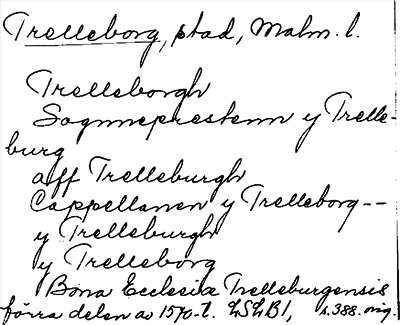 Trelleborg, stad, Malm. l.
Trelleborgh
Sognneprestenn y Trelle-
burg
aff Trelleburgh
Cappellanen y Trelleborg--
y Trelleburgh
y Trelleborg
Bona Ecclesiæ Trelleburgensis
förra delen av 1570-t. LSLB1, s. 388. orig.